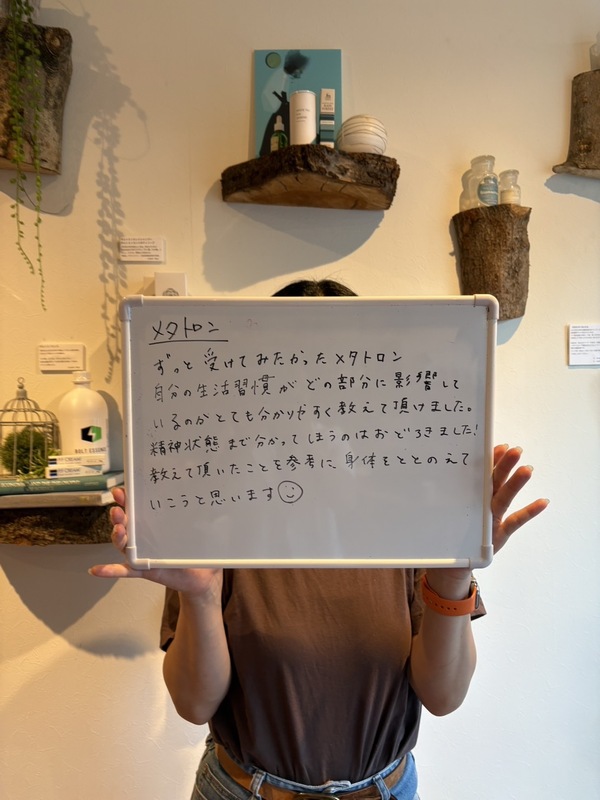 メタトロン
ずっと受けてみたかったメタトロン
自分の生活習慣がどの部分に影響して
いるのかとても分かりやすく教えて頂けました。
精神状態まで分かってしまうのはおどろきました!
教えて頂いたことを参考に、身体をととのえて
いこうと思います
HOLY ESSENCE